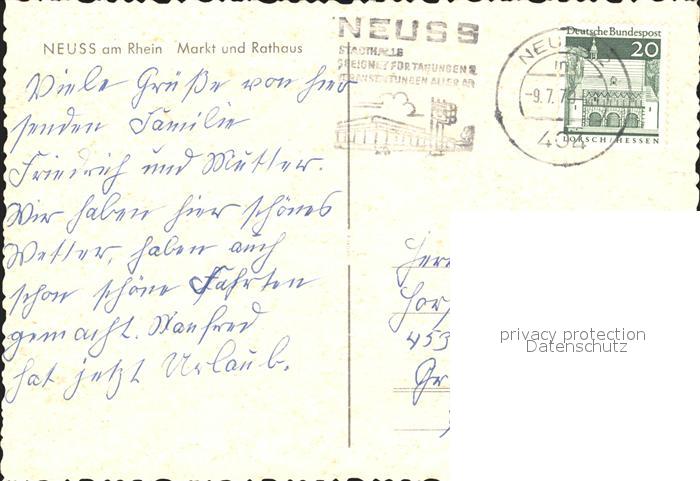 NEUSS am Rhein Markt und Rathaus
Viele Grüße von hier
senden Familie
Friedrich und Mutter.
Wir haben hier schönes
Wetter, haben auch
schon schöne Fahrten
gemacht. Manfred
hat jetzt Urlaub.
NEUSS
STADTHALLE
GEEIGNET FÜR TAGUNGEN U.
VERANSTALTUNGEN ALLER ART
NEUSS
-9.7.70
404
Deutsche Bundespost
20
LORSCH/HESSEN
453
privacy protection
Datenschutz